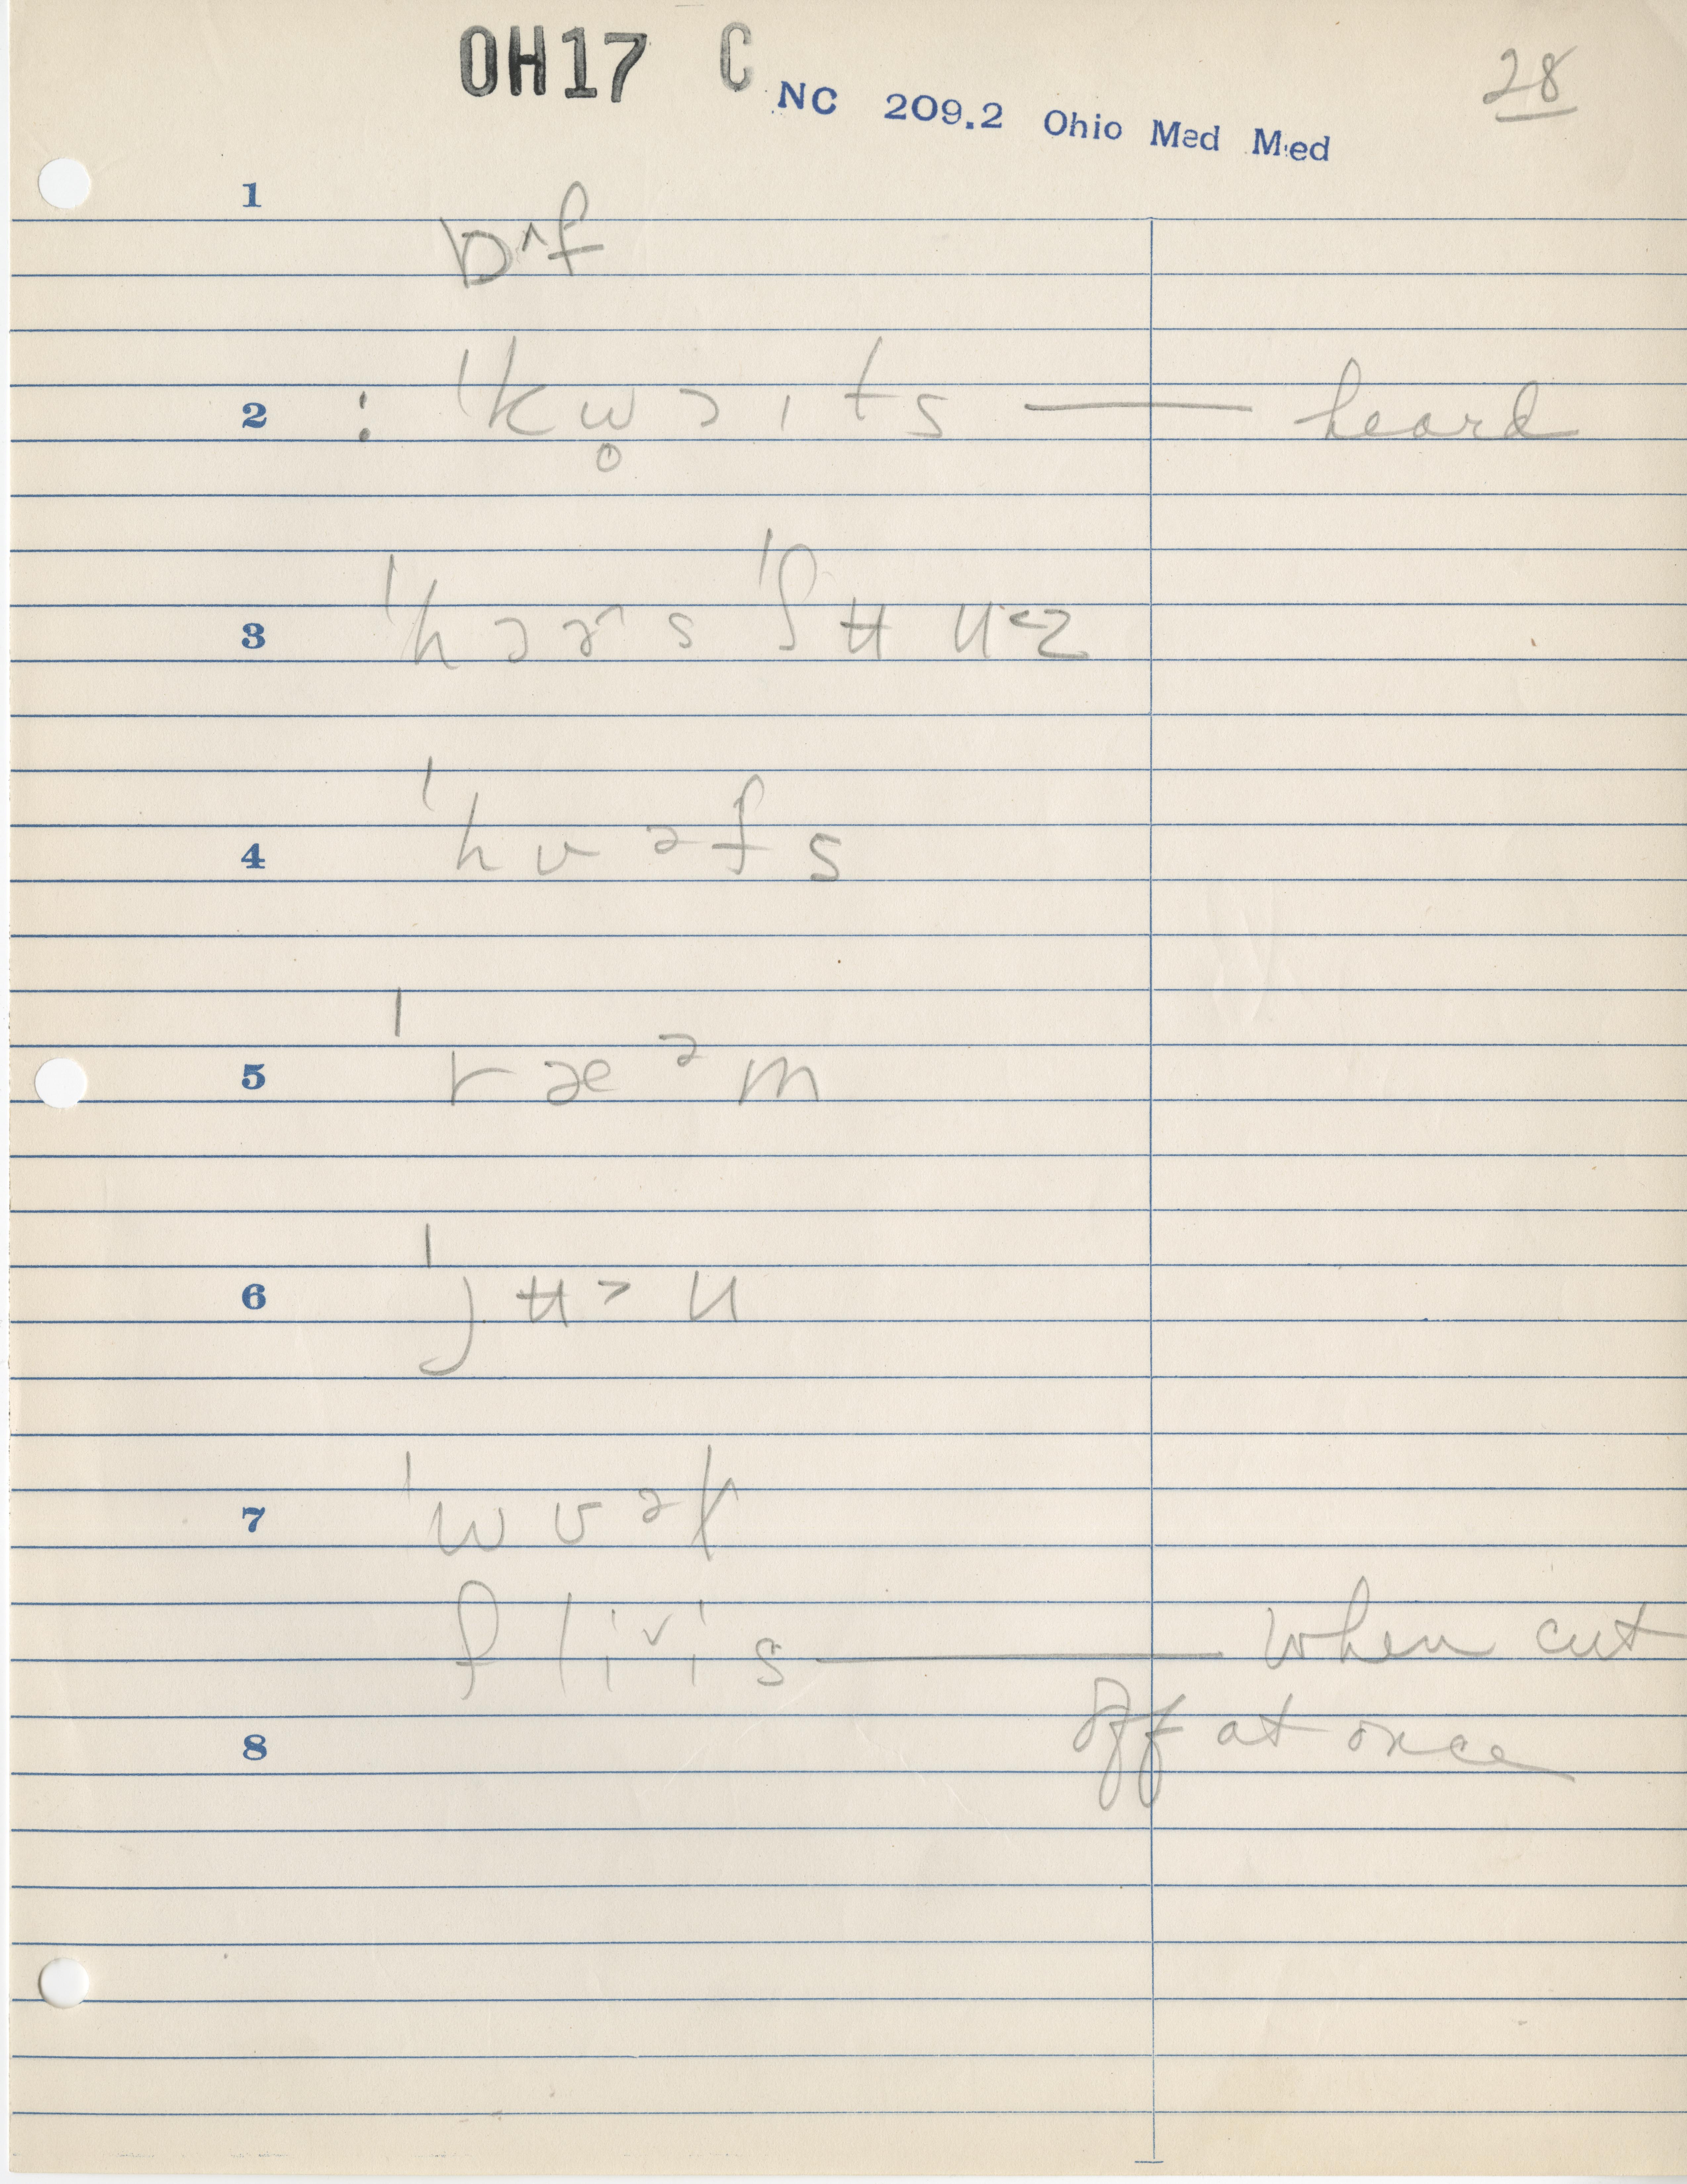 OH17 C
28
NC 209.2 Ohio Med Med
1
bʌf
2 : ˈkw̥ɔɪts — heard
3 ˈhɔɚsˈʃʉu<z
4 ˈhʊəfs
5 ˈræəm
6 ˈjʉ>u
7
flɪˇɪs — when cut
off at once
8